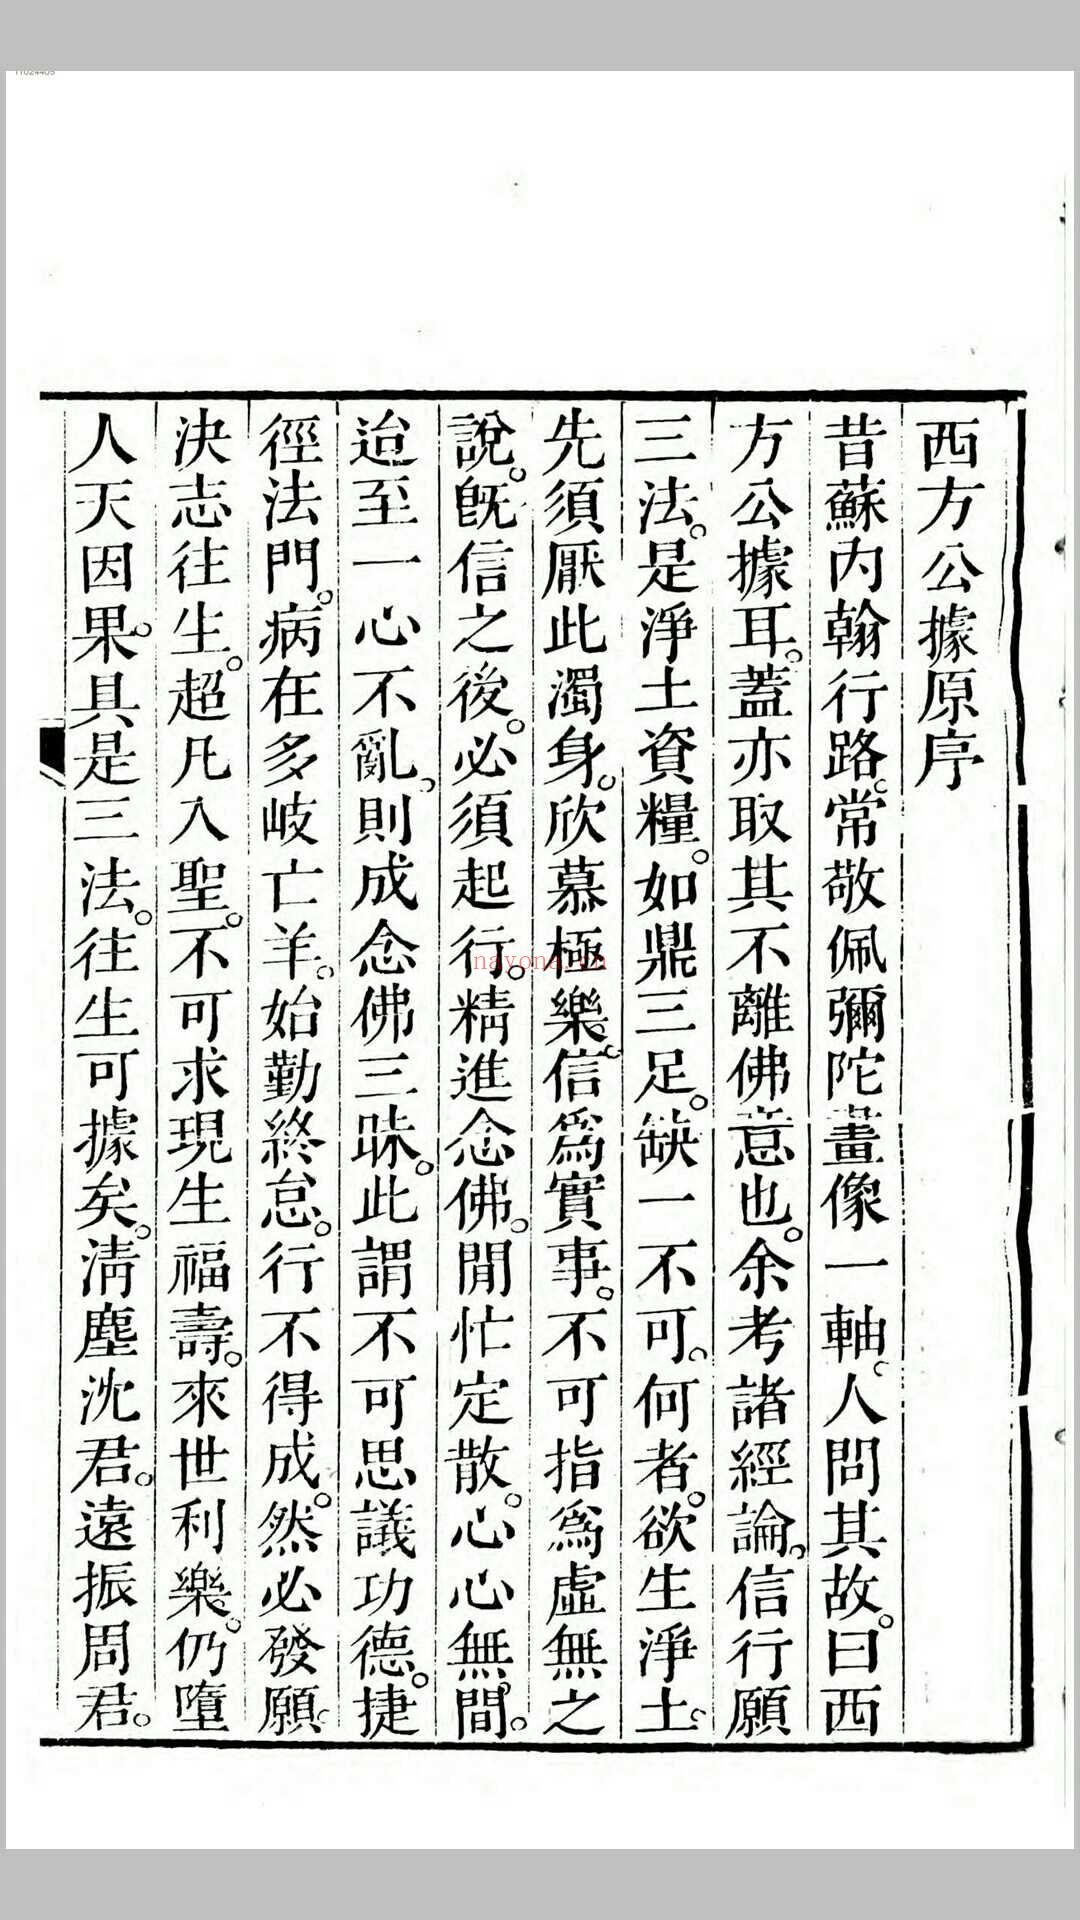 11024405
西方公據原序
昔蘇內翰行路。常敬佩彌陀畫像一軸。人問其故。曰西
方公據耳。蓋亦取其不離佛意也。余考諸經論。信行願
三法。是淨土資糧。如鼎三足。缺一不可。何者。欲生淨土。
先須厭此濁身。欣慕極樂。信爲實事。不可指爲虛無之
說。旣信之後。必須起行。精進念佛。閒忙定散。心心無間。
迨至一心不亂。則成念佛三昧。此謂不可思議功德。捷
徑法門。病在多岐亡羊。始勤終怠。行不得成。然必發願。
決志往生。超凡入聖。不可求現生福壽。來世利樂。仍墮
人天因果。具是三法。往生可據矣。淸塵沈君。遠振周君。
nayona.cn